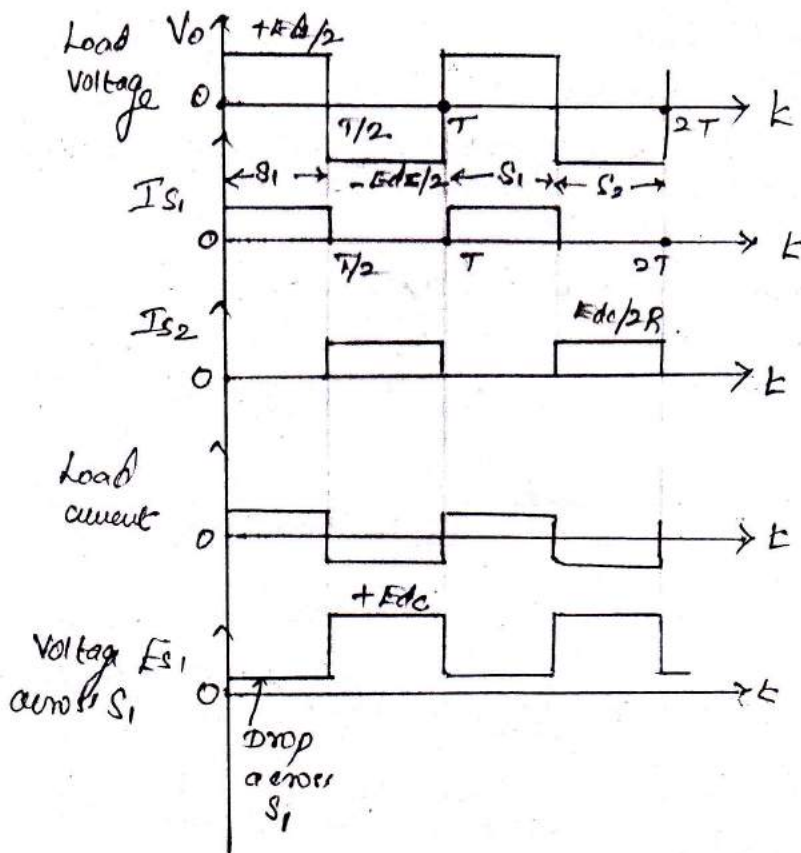 Load Voltage
Vo
+Edc/2
0
T/2
T
2T
t
S1
-Edc/2
S1
S2
IS1
0
T/2
T
2T
t
IS2
Edc/2R
0
t
Load current
0
t
+Edc
Voltage ES1
across S1
0
t
Drop
across
S1